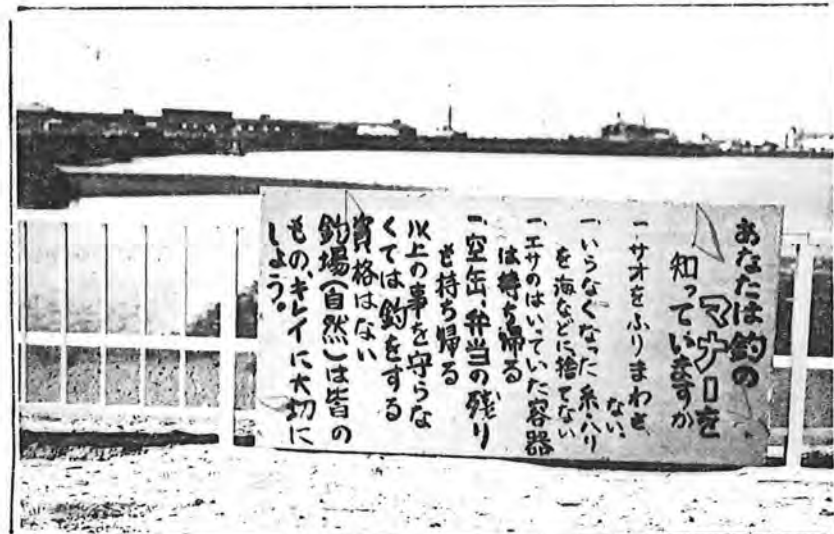 あなたは釣の
マナーを
知っていますか
一、サオをふりまわさ
ない、
一、いらなくなった糸、ハリ
を海などに捨てない
一、エサのはいっていた容器
は持ち帰る
一、空缶、弁当の残り
も持ち帰る
以上の事を守らな
くては釣をする
資格はない
釣場(自然)は皆の
もの、キレイに大切に
しょう。